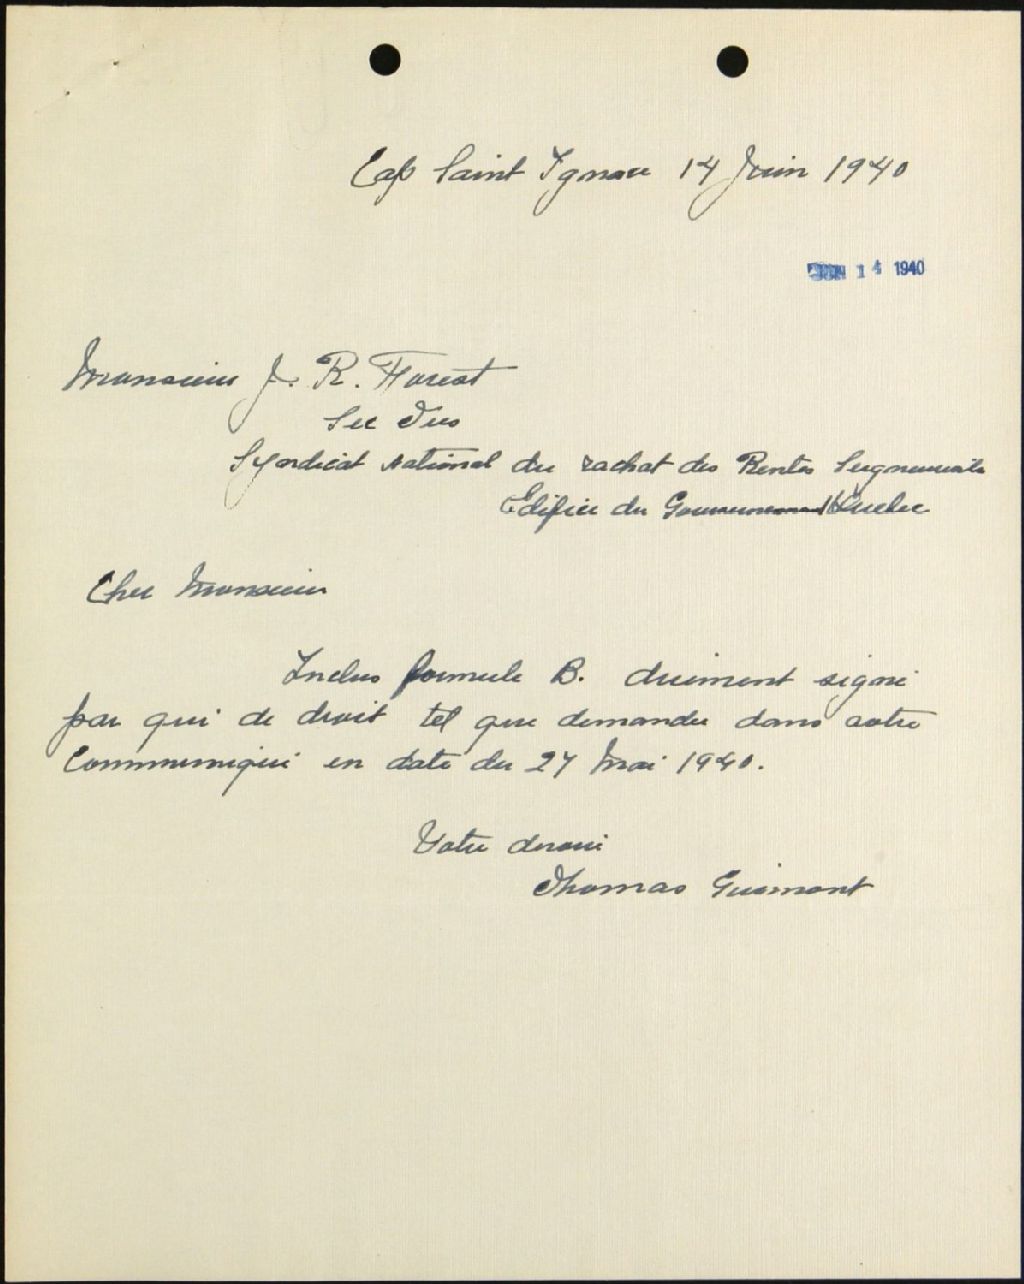 Cap Saint Ignace 14 Juin 1940
JUN 14 1940
Monsieur J. R. Forest
Sec Tres
Syndicat National du rachat des Rentes Seigneuriales
Edifice du Gouvernement Quebec
Cher Monsieur
Inclus formule B. duement signé
par qui de droit tel que demandée dans votre
Communiqué en date du 27 Mai 1940.
Votre devoué
Thomas Guimont